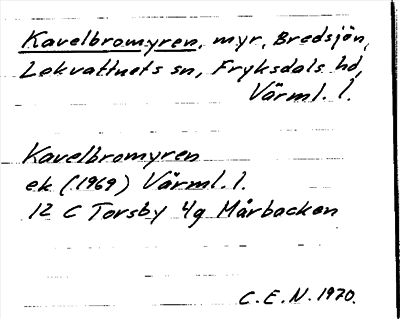 Kavelbromyren, myr, Bredsjön,
Lekvattnets sn, Fryksdals hd,
Värml. l.
Kavelbromyren
ek (1969) Värml. l.
12 C Torsby 4g Mårbacken
C.E.N. 1970.